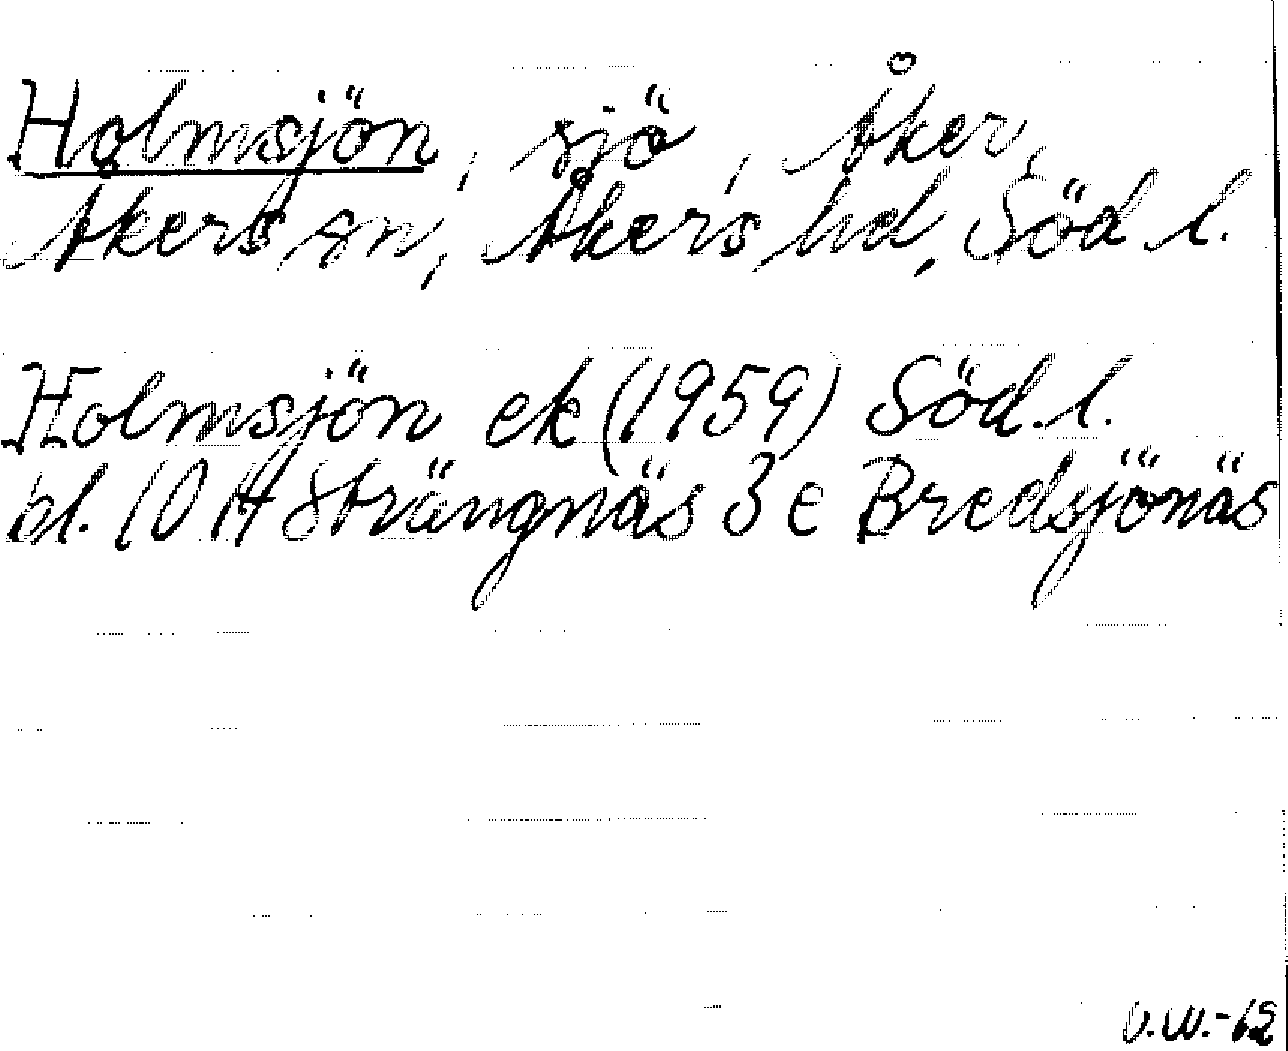 Holmsjön, sjö, Åker,
Åkers sn, Åkers hd, Söd. l.
Holmsjön ek (1959) Söd. l.
bl. 10 H Strängnäs 3 e Bredsjönäs
V.W.-62